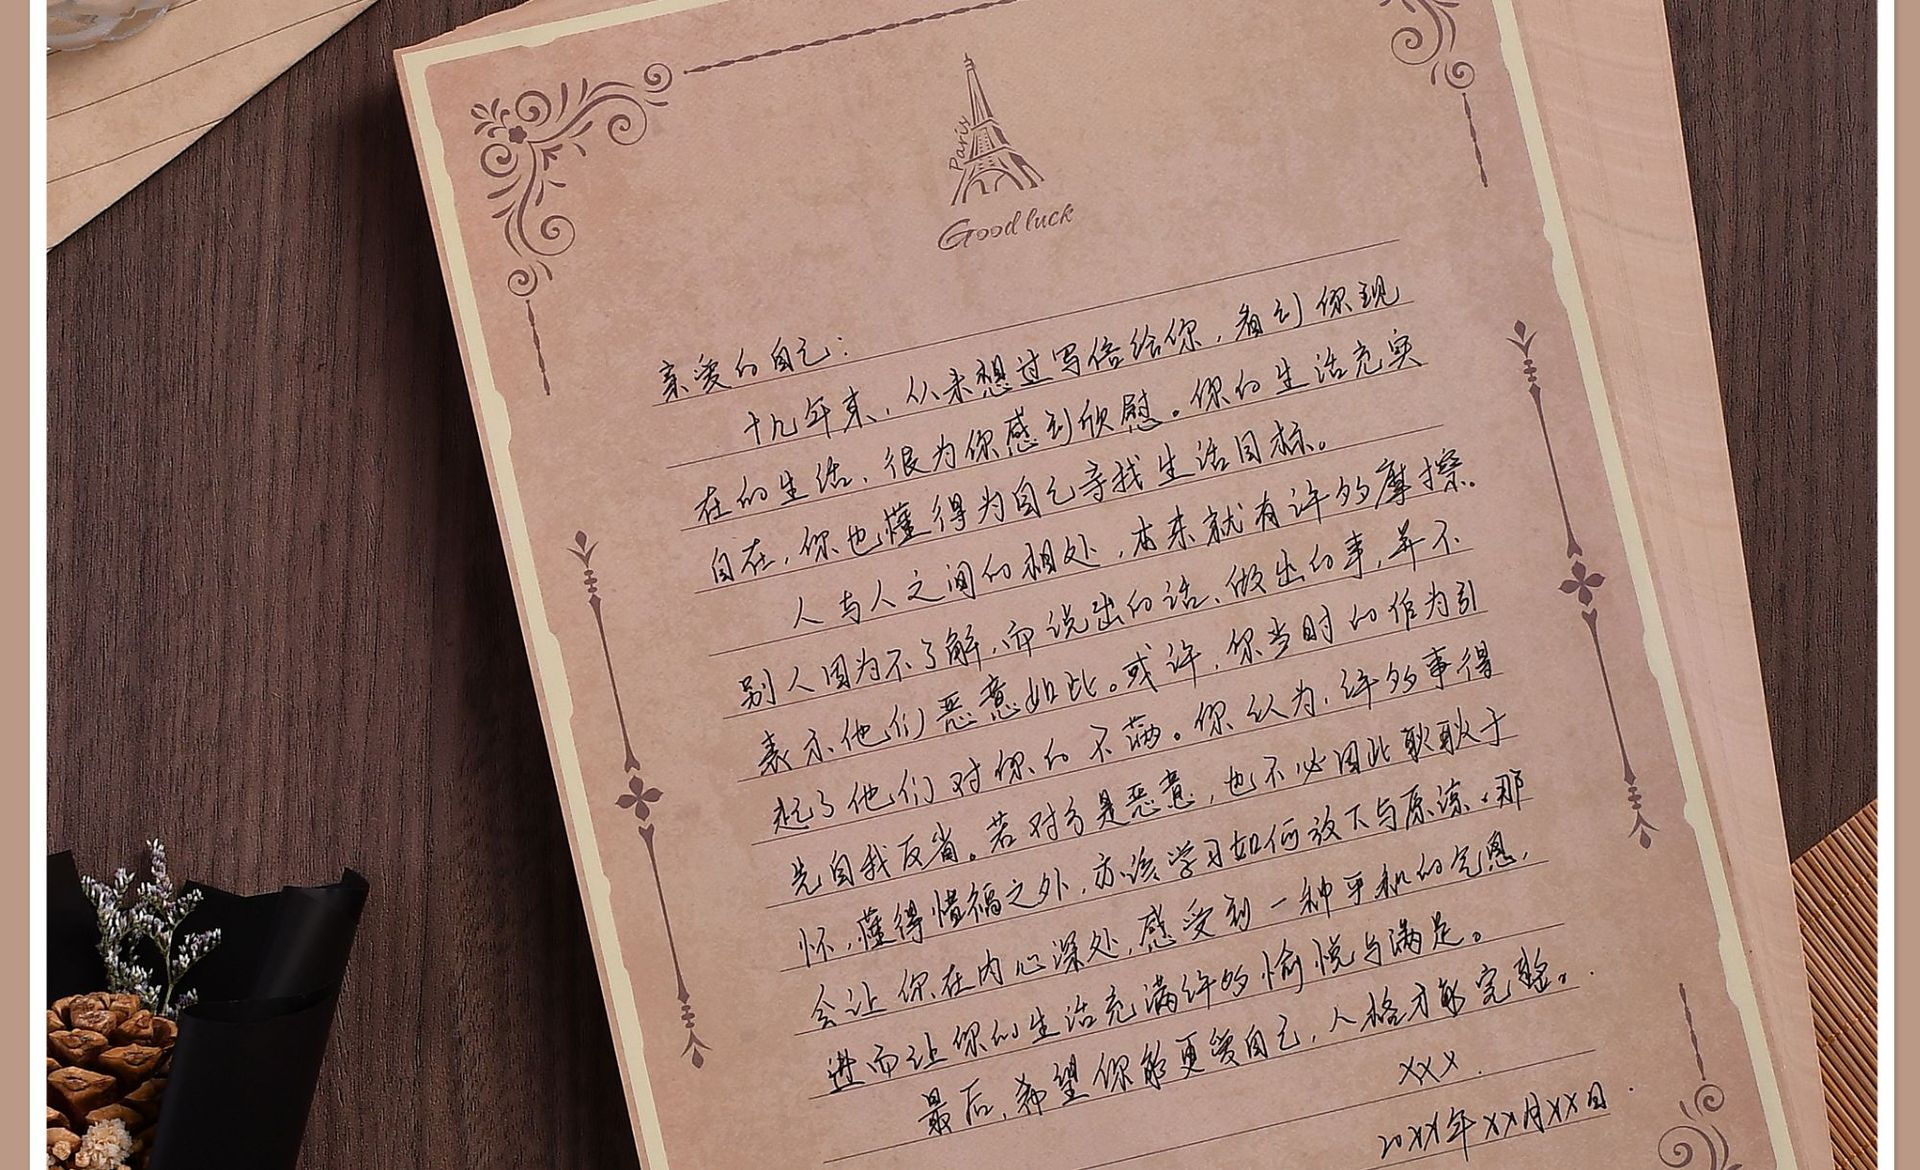 Paris
Good luck
亲爱的自己:
十九年来,从未想过写信给你,看到你现
在的生活、很为你感到欣慰。你的生活充实
自在,你也懂得为自己寻找生活目标。
人与人之间的相处,本来就有许多摩擦。
别人因为不了解,而说出的话、做出的事,并不
表示他们恶意如此。或许,你当时的作为引
起了他们对你的不满。你认为,许多事得
先自我反省。若对方是恶意,也不必因此耿耿于
怀,懂得惜福之外,亦该学习如何放下与原谅。那
会让你在内心深处,感受到一种平和的气息,
进而让你的生活充满许多愉悦与满足。
最后,希望你能更爱自己,人格才能完整。
xxx.
20xx年xx月xx日.